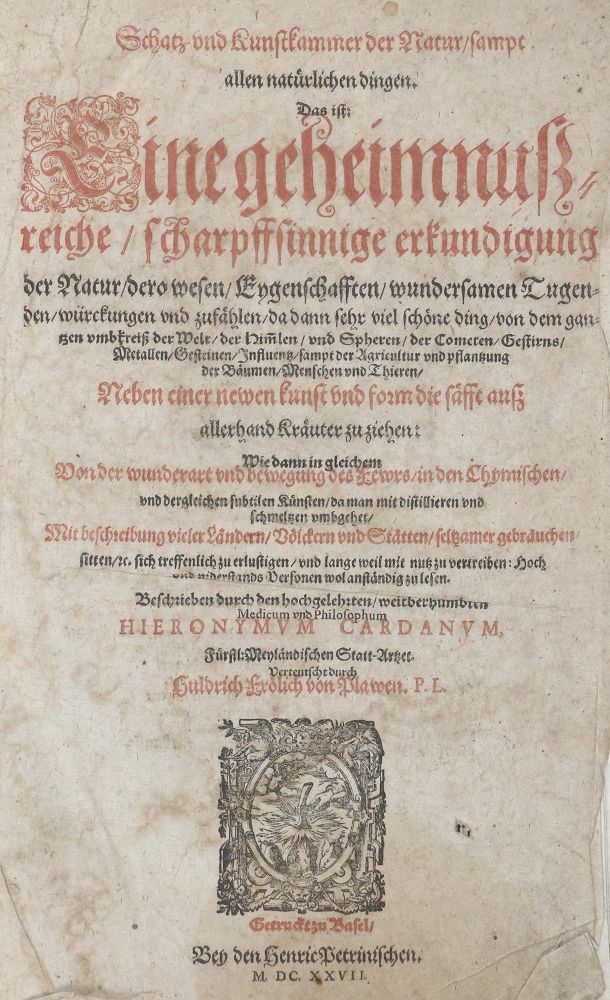 Schatz vnd Kunstkammer der Natur/sampt
allen natürlichen dingen.
Das ist:
Eine geheimnuß-
reiche/scharpffsinnige erkundigung
der Natur/dero wesen/Eygenschafften/wundersamen Tugen-
den/würckungen vnd zufählen/da dann sehr viel schöne ding/von dem gan-
tzen vmbkreiß der Welt/der Him̃len/vnd Spheren/der Cometen/Gestirns/
Metallen/Gesteinen/Influentz/sampt der Agricultur vnd pflantzung
der Bäumen/Menschen vnd Thieren/
Neben einer newen kunst vnd form die säfft auß
allerhand Kräuter zu ziehen:
Wie dann in gleichem
Von der wunderart vnd bewegung des Fewrs/in den Chymischen/
vnd dergleichen subtilen Künsten/da man mit distillieren vnd
schmeltzen vmbgehet/
Mit beschreibung vieler Ländern/Völckern vnd Stätten/seltzamer gebräuchen
sitten/ꝛc. sich treffenlich zu erlustigen/vnd lange weil mit nutz zu vertreiben: Hoch
vnd niderstands Personen wol anständig zu lesen.
Beschrieben durch den hochgelehrten/weitberhümbten
Medicum vnd Philosophum
HIERONYMVM CARDANVM,
Fürstl: Meyländischen Statt-Artzet.
Verteutscht durch
Huldrich Frölich von Plawen. P. L.
Getruckt zu Basel/
Bey den HenricPetrinischen.
M. DC. XXVII